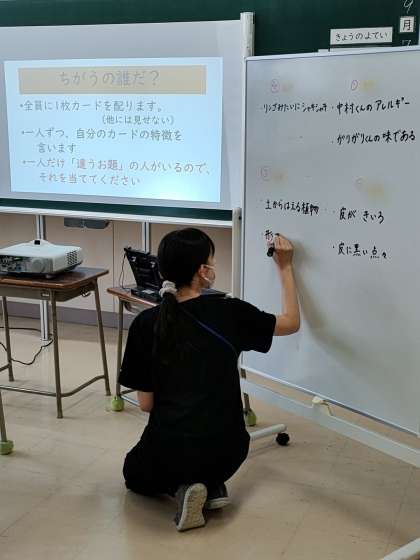 きょうのよてい
9
月
ちがうの誰だ？
•全員に1枚カードを配ります。
(他には見せない)
•一人ずつ、自分のカードの特徴を
言います
•一人だけ「違うお題」の人がいるので、
それを当ててください
・リンゴみたいにシャキシャキ
・中村くんのアレルギー
・ガリガリくんの味である
・土からはえる植物
・皮が きいろ
・皮に黒い点々